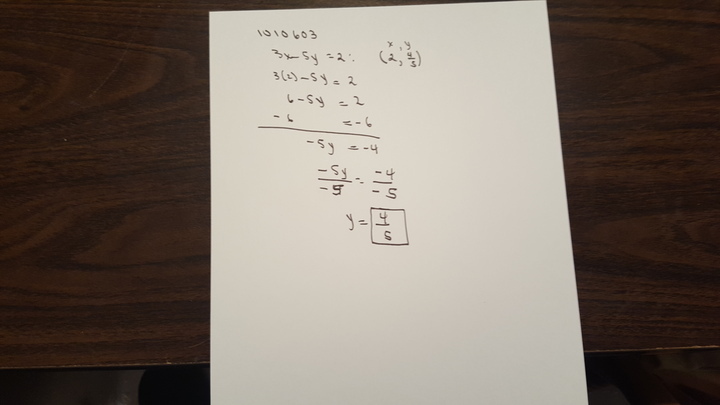 1010603
x, y
3x-5y=2: (2, 4/5)
3(2)-5y=2
6-5y=2
-6 =-6
-5y=-4
-5y/-5=-4/-5
y=4/5